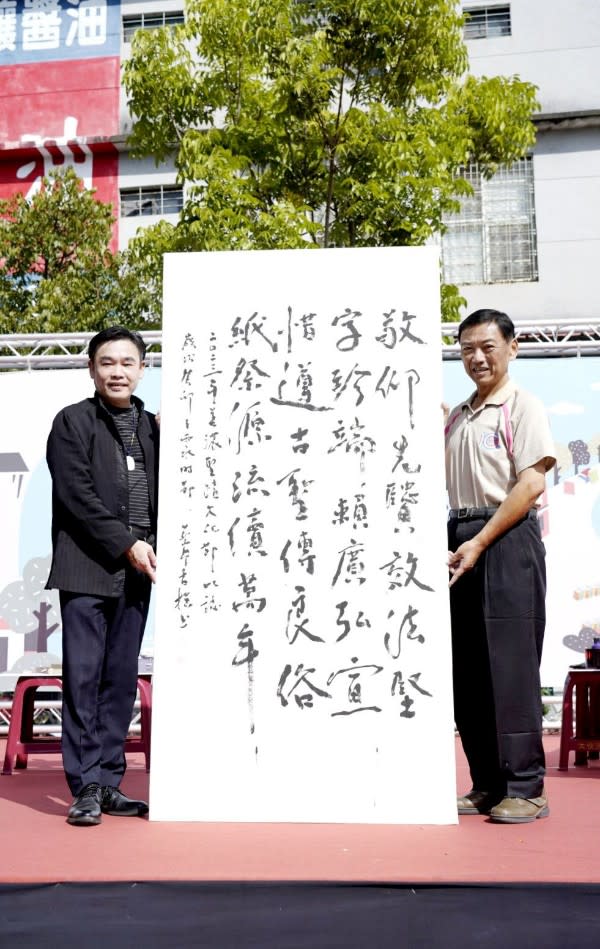 釀醬油
敬仰先賢效法堅
字珍端賴廣弘宣
惜遵古聖傳良俗
紙祭源流續萬年
二〇二三年美濃聖蹟文化節以誌